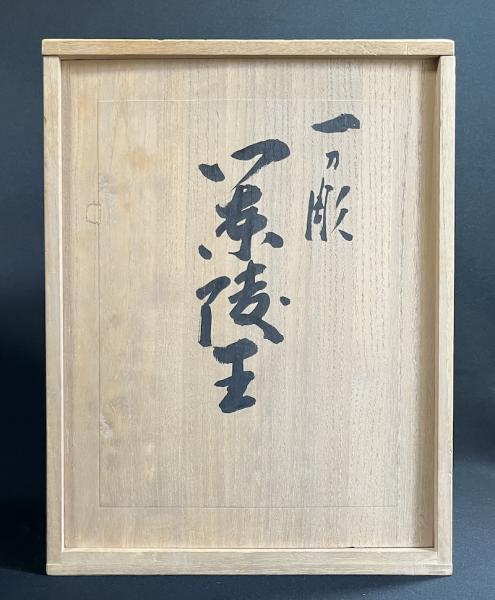 一刀彫
蘭陵王